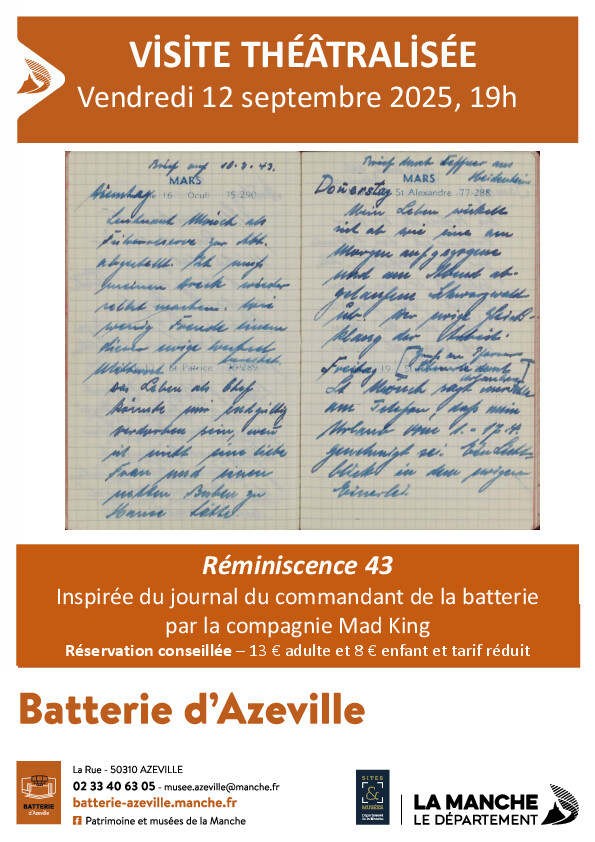 VİSİTE THÉÂTRALİSÉE
Vendredi 12 septembre 2025, 19h
Brief auf 10.3.43.
MARS
Dienstag 16 Oculi 75-290
Leutnant Mönch als
zur Abt.
abgestellt. Ich muß
meinen Dreck wieder
selbst machen. Wie
wenig Freude einem
dieser ewige Wechsel
bereitet
Mittwoch St Patrice 76-289
Das Leben als Chef
könnte mir endgültig
verdorben sein, wenn
ich nicht eine liebe
Frau und einen
netten Buben zu
Hause hätte.
Brief nach aus
Heidenheim
MARS
Donnerstag St Alexandre 77-288
Mein Leben wickelt
sich ab wie eine am
Morgen aufgezogene
und am Abend ab-
gelaufene Schwarzwald
uhr. Der ewige Gleich-
klang der Arbeit.
Freitag 19
Lt Mönch sagt
am Telefon, daß mein
Urlaub vom 1. - 17.4.
genehmigt sei. Ein Licht-
blick in dem ewigen
Einerlei.
Réminiscence 43
Inspirée du journal du commandant de la batterie
par la compagnie Mad King
Réservation conseillée – 13 € adulte et 8 € enfant et tarif réduit
Batterie d’Azeville
BATTERIE
d'Azeville
La Rue - 50310 AZEVILLE
02 33 40 63 05 - musee.azeville@manche.fr
batterie-azeville.manche.fr
Patrimoine et musées de la Manche
SITES
&
MUSÉES
Département
de la Manche
LA MANCHE
LE DÉPARTEMENT